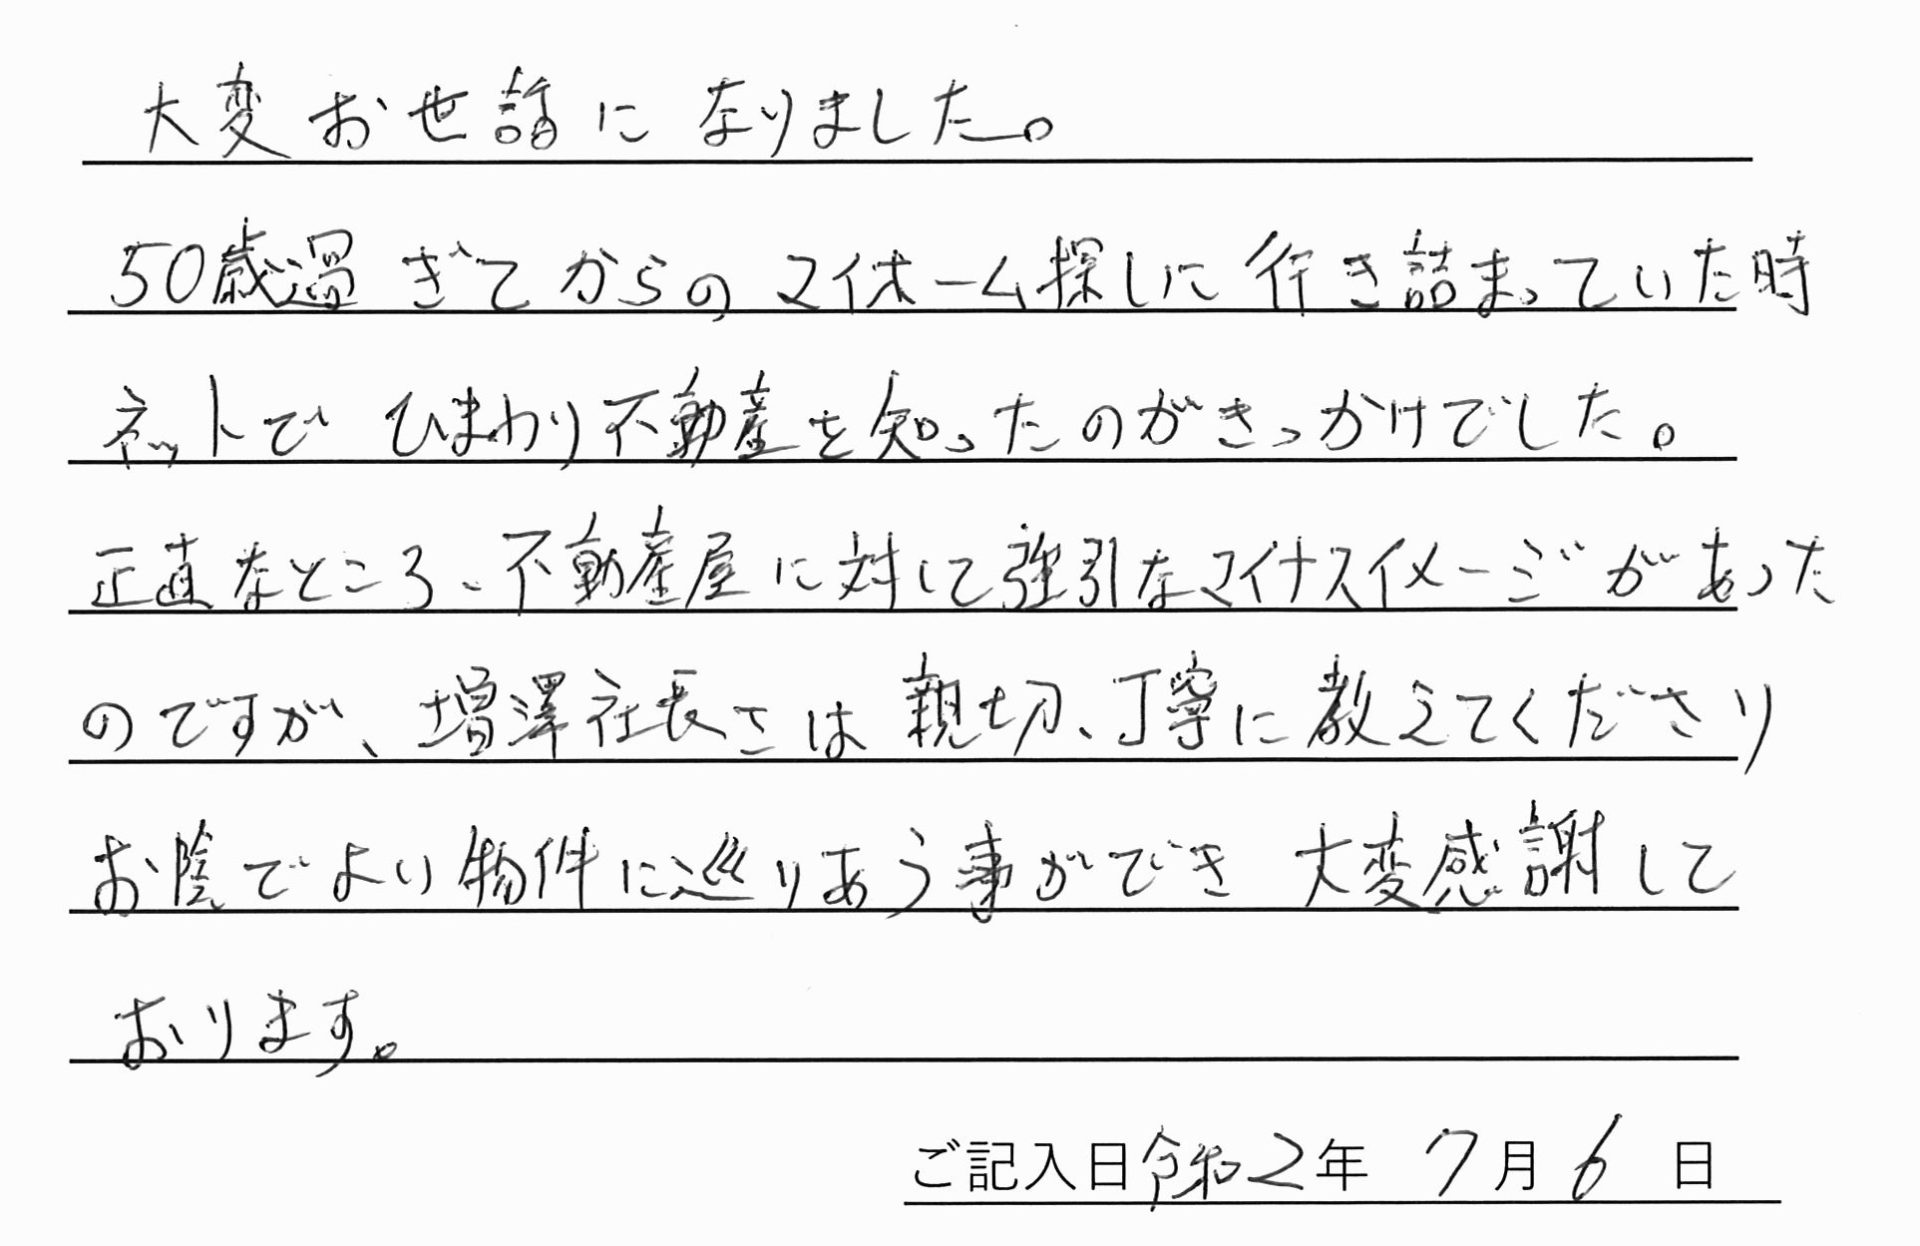 大変お世話になりました。
50歳過ぎてからのマイホーム探しに行き詰まっていた時
ネットでひまわり不動産を知ったのがきっかけでした。
正直なところ、不動産屋に対して強引なマイナスイメージがあった
のですが、増澤社長さは親切、丁寧に教えてくださり
お陰でよい物件に巡りあう事ができ 大変感謝して
おります。
ご記入日令和2年 7月6日